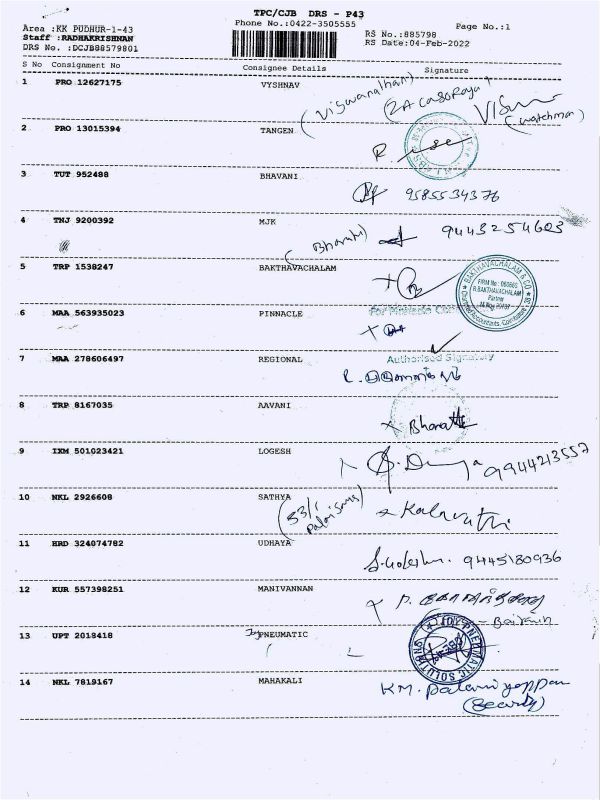 TPC/CJB DRS - P43
Phone No.:0422-3505555
Page No.:1
Area :KK PUDHUR-1-43
Staff :RADHAKRISHNAN
DRS No. :DCJB88579801
RS No.:885798
RS Date:04-Feb-2022
S No Consignment No Consignee Details Signature
1 PRO 12627175 VYSHNAV
(Viswanathan)
(Watchman)
2 PRO 13015394 TANGEN
3 TUT 952488 BHAVANI
9585534376
4 TNJ 9200392 MJK
(Bharathi) 9443254603
5 TRP 1538247 BAKTHAVACHALAM
BAKTHAVACHALAM & CO
FIRM No.
R.BAKTHAVACHALAM
Partner
Chartered Accountants, Coimbatore
6 MAA 563935023 PINNACLE
7 MAA 278606497 REGIONAL
Authorised Signatory
8 TRP 8167035 AAVANI
Bharath
9 IXM 501023421 LOGESH
9944213557
10 NKL 2926608 SATHYA
Kalavathi
11 HRD 324074782 UDHAYA
9445180936
12 KUR 557398251 MANIVANNAN
13 UPT 2018418 Joy PNEUMATIC
JOY PNEUMATIC SOLUTIONS
14 NKL 7819167 MAHAKALI
KM. Palaniyappan